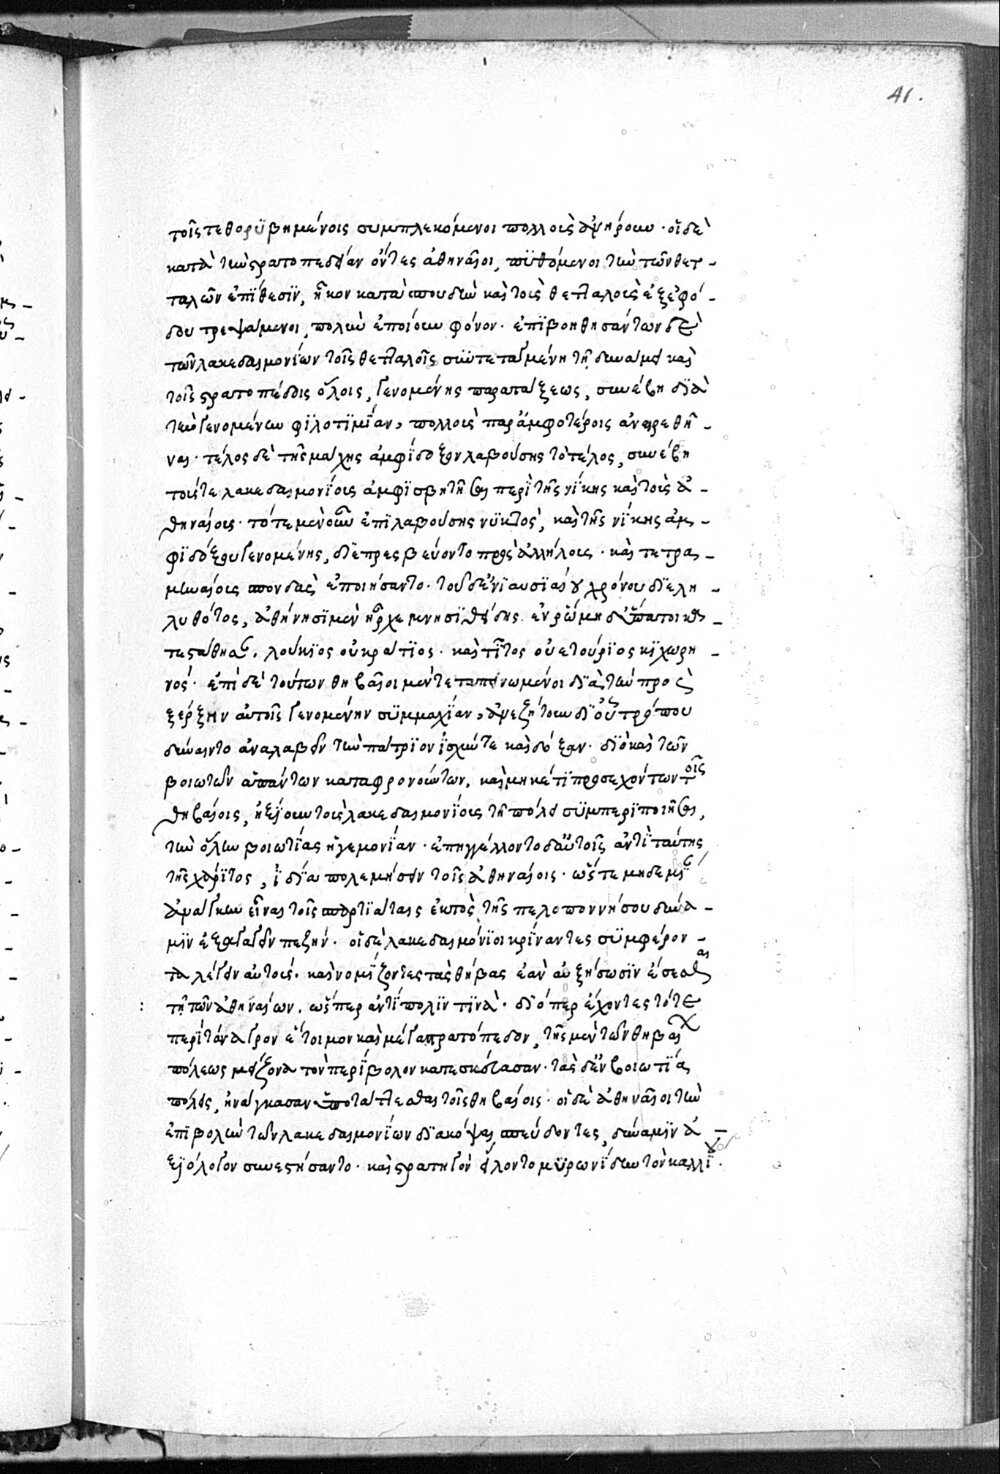 41.
τοῖς τεθορϋβημένοις συμπλεκόμενοι πολλοὺς ἀνῄρουν· οἱ δὲ
κατὰ τὴν στρατοπεδείαν ὄντες ἀθηναῖοι, πϋθόμενοι τὴν τῶν θετ-
ταλῶν ἐπίθεσϊν, ἧκον κατὰ σπουδὴν καὶ τοὺς θετταλοὺς ἐξ ἐφό-
δου τρεψάμενοι, πολὺν ἐποίουν φόνον· ἐπϊβοηθησάντων δὲ
τῶν λακεδαιμονίων τοῖς θετταλοῖς συντεταγμένῃ τῇ δυνάμει καὶ
τοῖς στρατοπέδοις ὅλοις, γενομένης παρατάξεως, συνέβη δϊὰ
τὴν γενομένην φϊλοτϊμΐαν, πολλοὺς παρ' ἀμφοτέροις ἀναιρεθῆ-
ναι· τέλος δὲ τῆς μάχης ἀμφίδοξον λαβούσης τὸ τέλος, συνέβη
τούς τε λακεδαιμονίοις ἀμφϊσβητῆσαι περὶ τῆς νίκης καὶ τοὺς ἀ-
θηναίοις· τότε μὲν οὖν ἐπϊλαβούσης νϋκτὸς, καὶ τῆς νίκης ἀμ-
φϊδόξου γενομένης, δϊεπρεσβεύοντο πρὸς ἀλλήλοις· καὶ τετρα-
μηναίοις σπονδὰς ἐποιήσαντο· τοῦ δ' ἐνϊαυσϊαίου χρόνου δϊελη-
λυθότος, ἀθήνησϊ μὲν ἦρχε μνησϊθείδης· ἐν ῥώμῃ δ' ὕπατοι κα-
τεστάθησαν, λούκϊος οὐκράτϊος· καὶ τΐτος οὐετούρϊος κϊχωρη-
νός· ἐπὶ δὲ τούτων θηβαῖοι μὲν τεταπεινωμένοι δϊὰ τὴν πρὸς
ξέρξην αὐτοῖς γενομένην σϋμμαχΐαν, ἀνεζήτουν δϊ' οὗ τρόπου
δύναιντο ἀναλαβεῖν τὴν πάτρϊον ἰσχύν τε καὶ δόξαν· δϊὸ καὶ τῶν
βοιωτῶν ἁπάντων καταφρονούντων, καὶ μηκέτϊ προσεχόντων τοῖς
θηβαίοις, ἠξίουν τοὺς λακεδαιμονΐους τῇ πόλει σϋμπερϊποιῆσαι,
τὴν ὅλην βοιωτΐας ἡγεμονΐαν· ἐπηγγέλλοντο δ' αὐτοῖς ἀντὶ ταύτης
τῆς χάρϊτος, ἰδίᾳ πολεμήσειν τοῖς ἀθηναίοις· ὥστε μηδεμΐαν
ἀνάγκην εἶναι τοῖς σπαρτϊάταις ἐκτὸς τῆς πελοποννήσου δύνα-
μϊν ἐξαγαγεῖν πεζήν· οἱ δὲ λακεδαιμόνϊοι κρΐναντες σϋμφέρον-
τα λέγειν αὐτούς· καὶ νομΐζοντες τὰς θήβας ἐὰν αὐξήσωσϊν ἔσεσθαι
τῇ τῶν ἀθηναίων, ὥσπερ ἀντίπολϊν τϊνά· δϊόπερ ἔχοντες τότε
περὶ τάναγρον ἕτοιμον καὶ μέγα στρατόπεδον, τῆς μὲν τῶν θηβαίων
πόλεως μείζονα τὸν περΐβολον κατεσκεύασαν· τὰς δ' ἐν βοιωτΐᾳ
πόλεις, ἠνάγκασαν ὑποτάττεσθαι τοῖς θηβαίοις· οἱ δὲ ἀθηναῖοι τὴν
ἐπϊβολὴν τῶν λακεδαιμονΐων δϊακόψαι σπεύδοντες, δύναμϊν ἀ-
ξϊόλογον συνεστήσαντο· καὶ στρατηγὸν εἵλοντο μϋρωνΐδην τὸν καλλΐου·